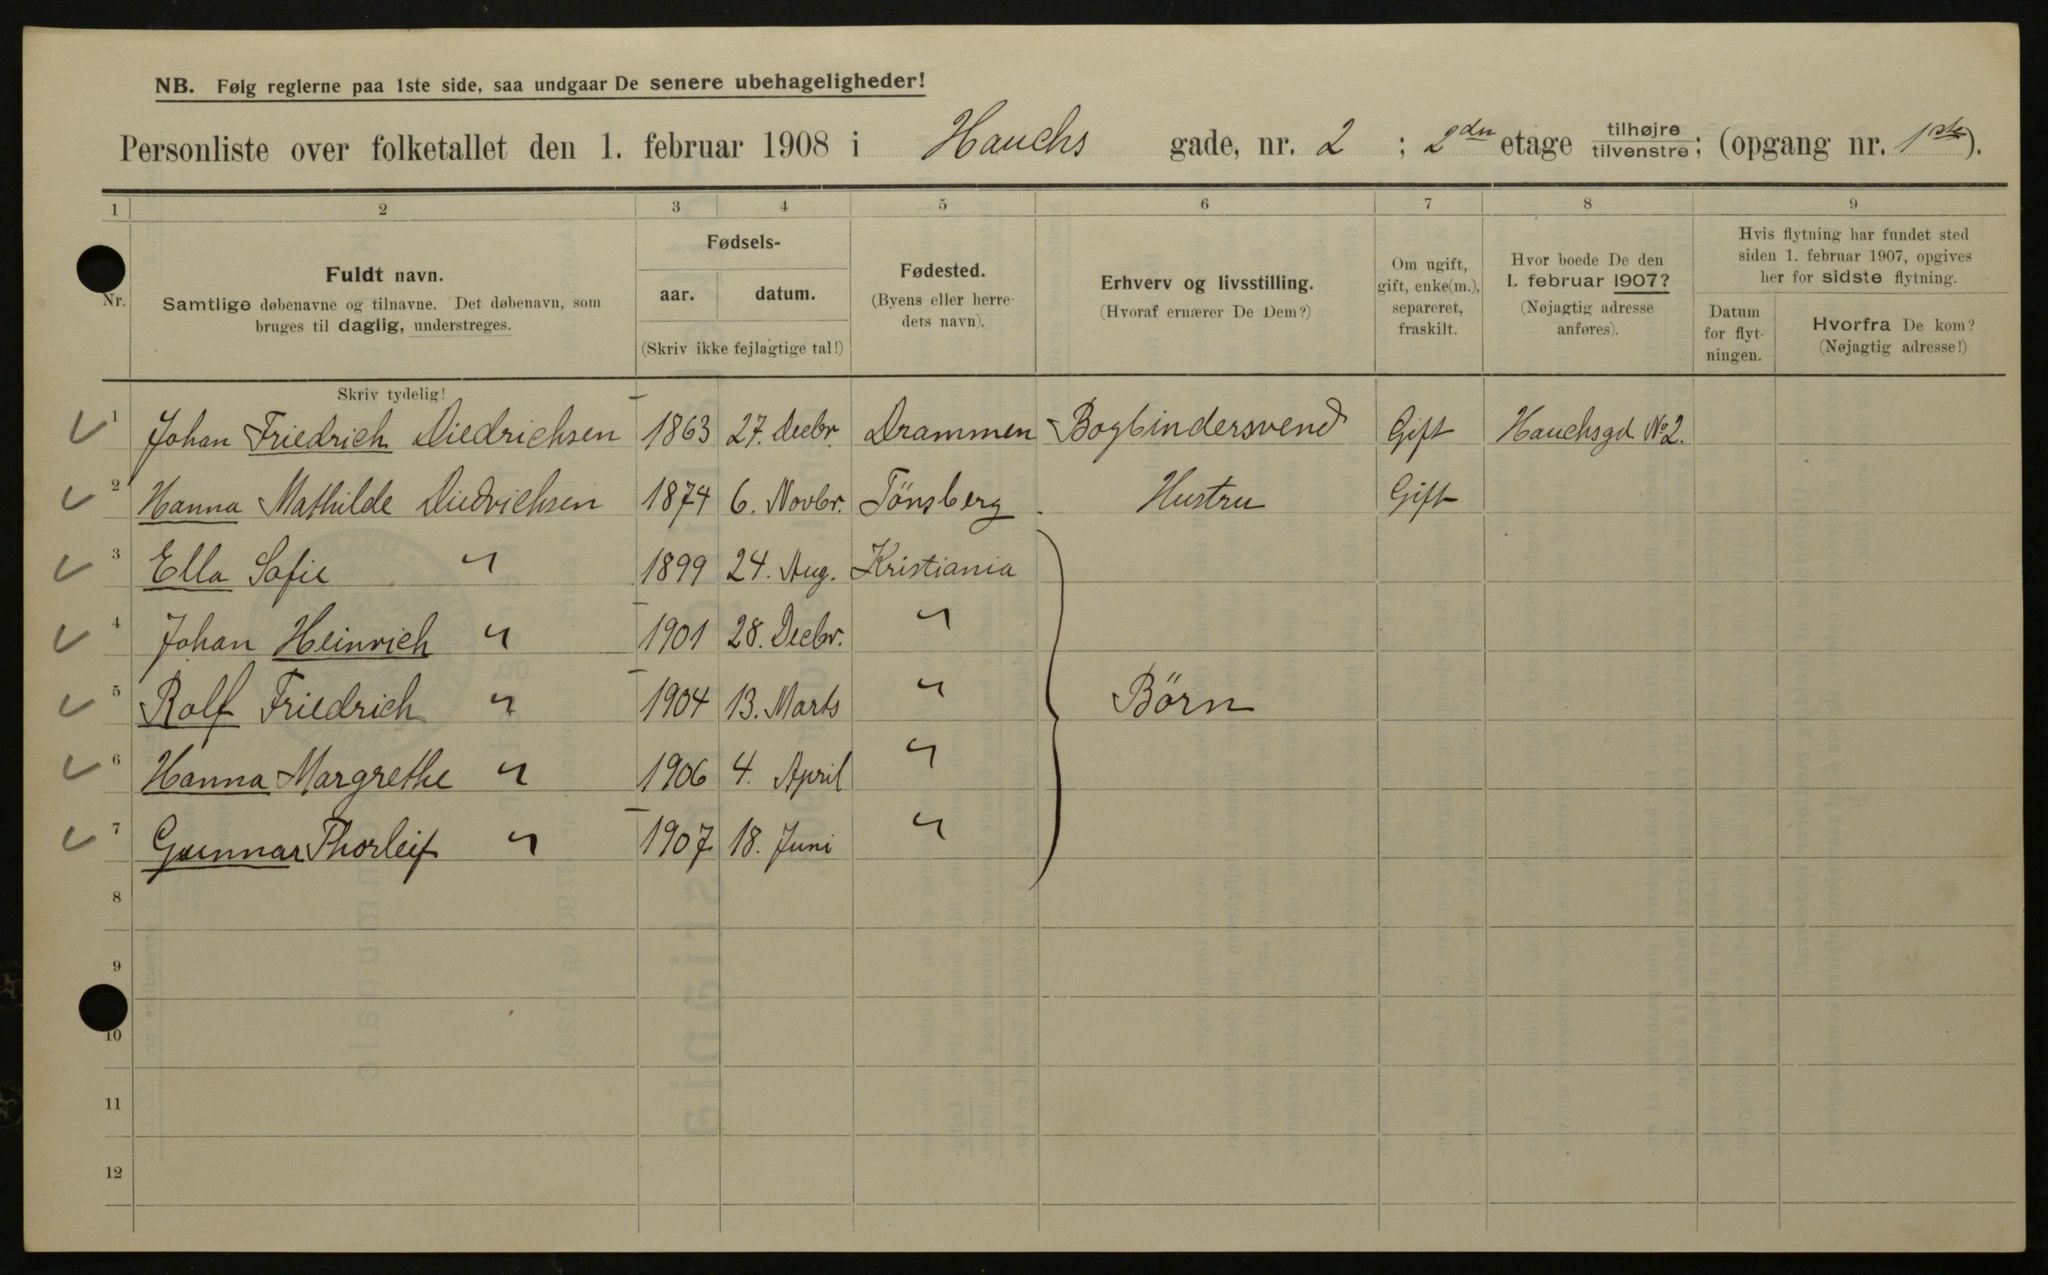 NB. Følg reglerne paa 1ste side, saa undgaar De senere ubehageligheder!
Personliste over folketallet den 1. februar 1908 i Hauchs gade, nr. 2 ; 2den etage tilhøjre / tilvenstre ; (opgang nr. 1ste).
1 2 3 4 5 6 7 8 9
Nr.
Fuldt navn.
Samtlige døbenavne og tilnavne. Det døbenavn, som
bruges til daglig, understreges.
Fødsels-
aar. datum.
(Skriv ikke fejlagtige tal!)
Fødested.
(Byens eller herre-
dets navn).
Erhverv og livsstilling.
(Hvoraf ernærer De Dem?)
Om ugift,
gift, enke(m.),
separeret,
fraskilt.
Hvor boede De den
1. februar 1907?
(Nøjagtig adresse
anføres).
Hvis flytning har fundet sted
siden 1. februar 1907, opgives
her for sidste flytning.
Datum
for flyt-
ningen.
Hvorfra De kom?
(Nøjagtig adresse!)
Skriv tydelig!
1 Johan Friedrich Diedrichsen 1863 27. Decbr. Drammen Bogbindersvend Gift Hauchsgd No 2.
2 Hanna Mathilde Diedrichsen 1874 6. Novbr. Tönsberg Hustru Gift
3 Ella Sofie " 1899 24. Aug. Kristiania
4 Johan Heinrich " 1901 28. Decbr. "
5 Rolf Friedrich " 1904 13. Marts " Börn
6 Hanna Margrethe " 1906 4. April "
7 Gunnar Thorleif " 1907 18. Juni "
8
9
10
11
12